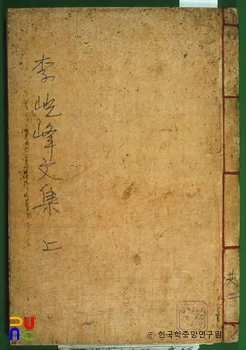 李屹峰文集 上
共二
RU
© 한국학중앙연구원